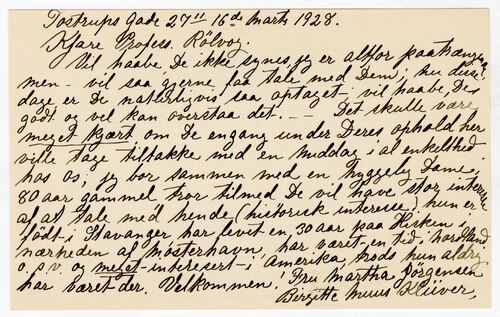 Tostrups Gade 27" 16de Marts 1928.
Kjære Profess. Rölvog.
Vil haabe De ikke synes jeg er altfor paatrængen
men – vil saa gjerne faa tale med Dem; nu disse
dage er De naturligvis saa optaget – vil haabe De
godt og vel kan overstaa det. – – Det skulle være
meget kjært om De engang under Deres ophold her
ville tage tiltakke med en middag i al enkelthed
hos os, jeg bor sammen med en hyggelig Dame,
80 aar gammel tror tilmed De vil have stor interesse
af at tale med hende (historisk interesse), hun er
født i Stavanger har levet en 30 aar paa Hisken i
nærheden af Mosterhavn, har været en tid i Nordland
o.s.v. og meget interesert i Amerika, trods hun aldrig
har været der. Velkommen! Fru Martha Jörgensen
Birgitte Muus Klüver,